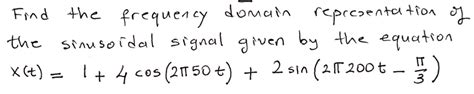 Find the frequency domain representation of
the sinusoidal signal given by the equation
x(t) = 1 + 4 cos(2π50t) + 2 sin(2π200t - π/3)